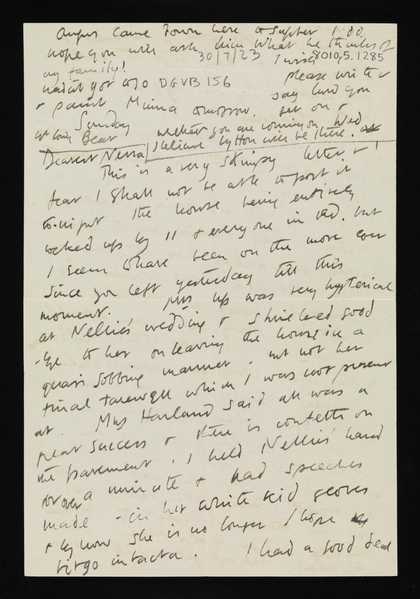 Angus came down here to supper 1.00
hope you will ask him what he thinks of
my family!
30/7/23
I wish
8010.5.1285
please write &
say how you
get on &
DGVB 156
& paint Muma tomorrow.
Sunday
whether you are coming on Wed
Bear
I believe Lytton will be there.
Dearest
This is a very skimpy letter & I
fear I shall not be able to post it
to-night the house being entirely
locked up by 11 & everyone in bed. but
I seem to have been on the move ever
since you left yesterday till this
moment. Mrs was very hysterical
at Nellie's wedding & shrieked good
-bye to her on leaving the house in a
quasi sobbing manner - not her
final farewell which I was not present
at. Mrs Harland said all was a
great success & there is confetti on
the pavement. I held Nellie's hand
for over a minute & had speeches
made - in her white kid gloves
& by now she is no longer I hope
virgo intacta. I had a good deal